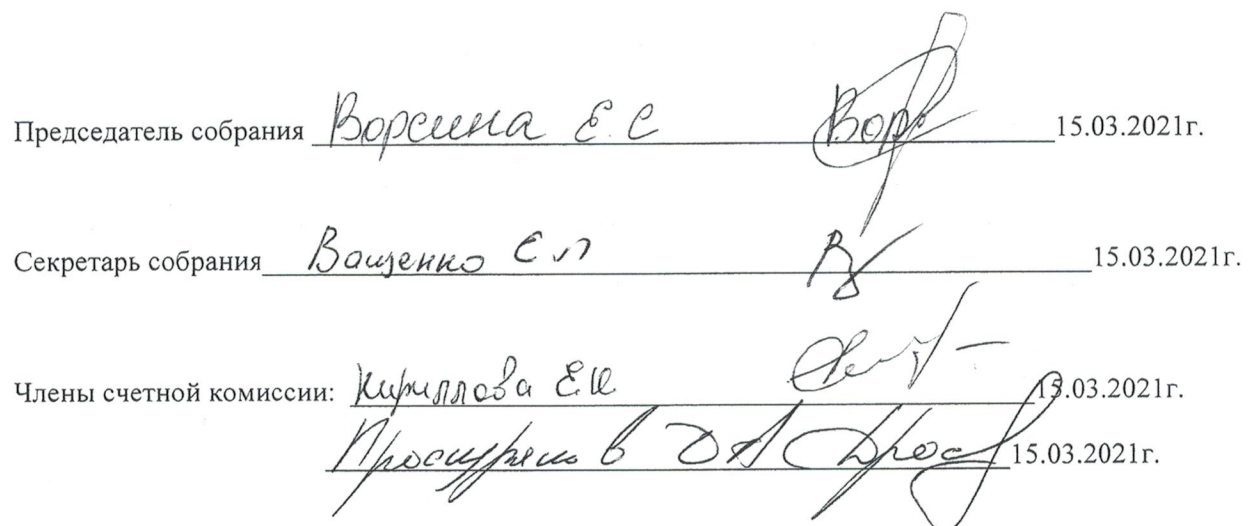 Председатель собрания Ворсина Е.С Вор 15.03.2021г.
Секретарь собрания Ващенко Е Л 15.03.2021г.
Члены счетной комиссии: Кириллова Е.И 15.03.2021г.
Д А 15.03.2021г.